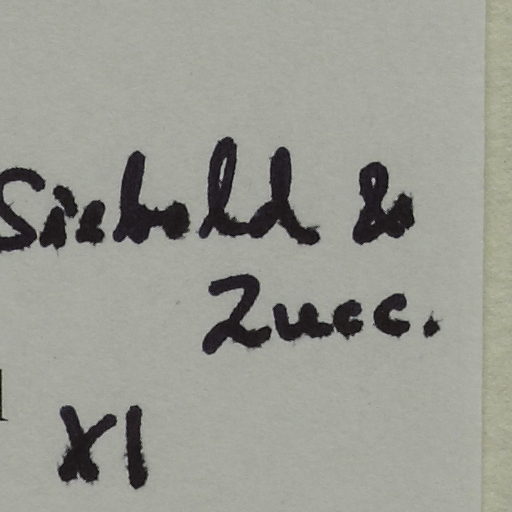 Siebold &
Zucc.
XI